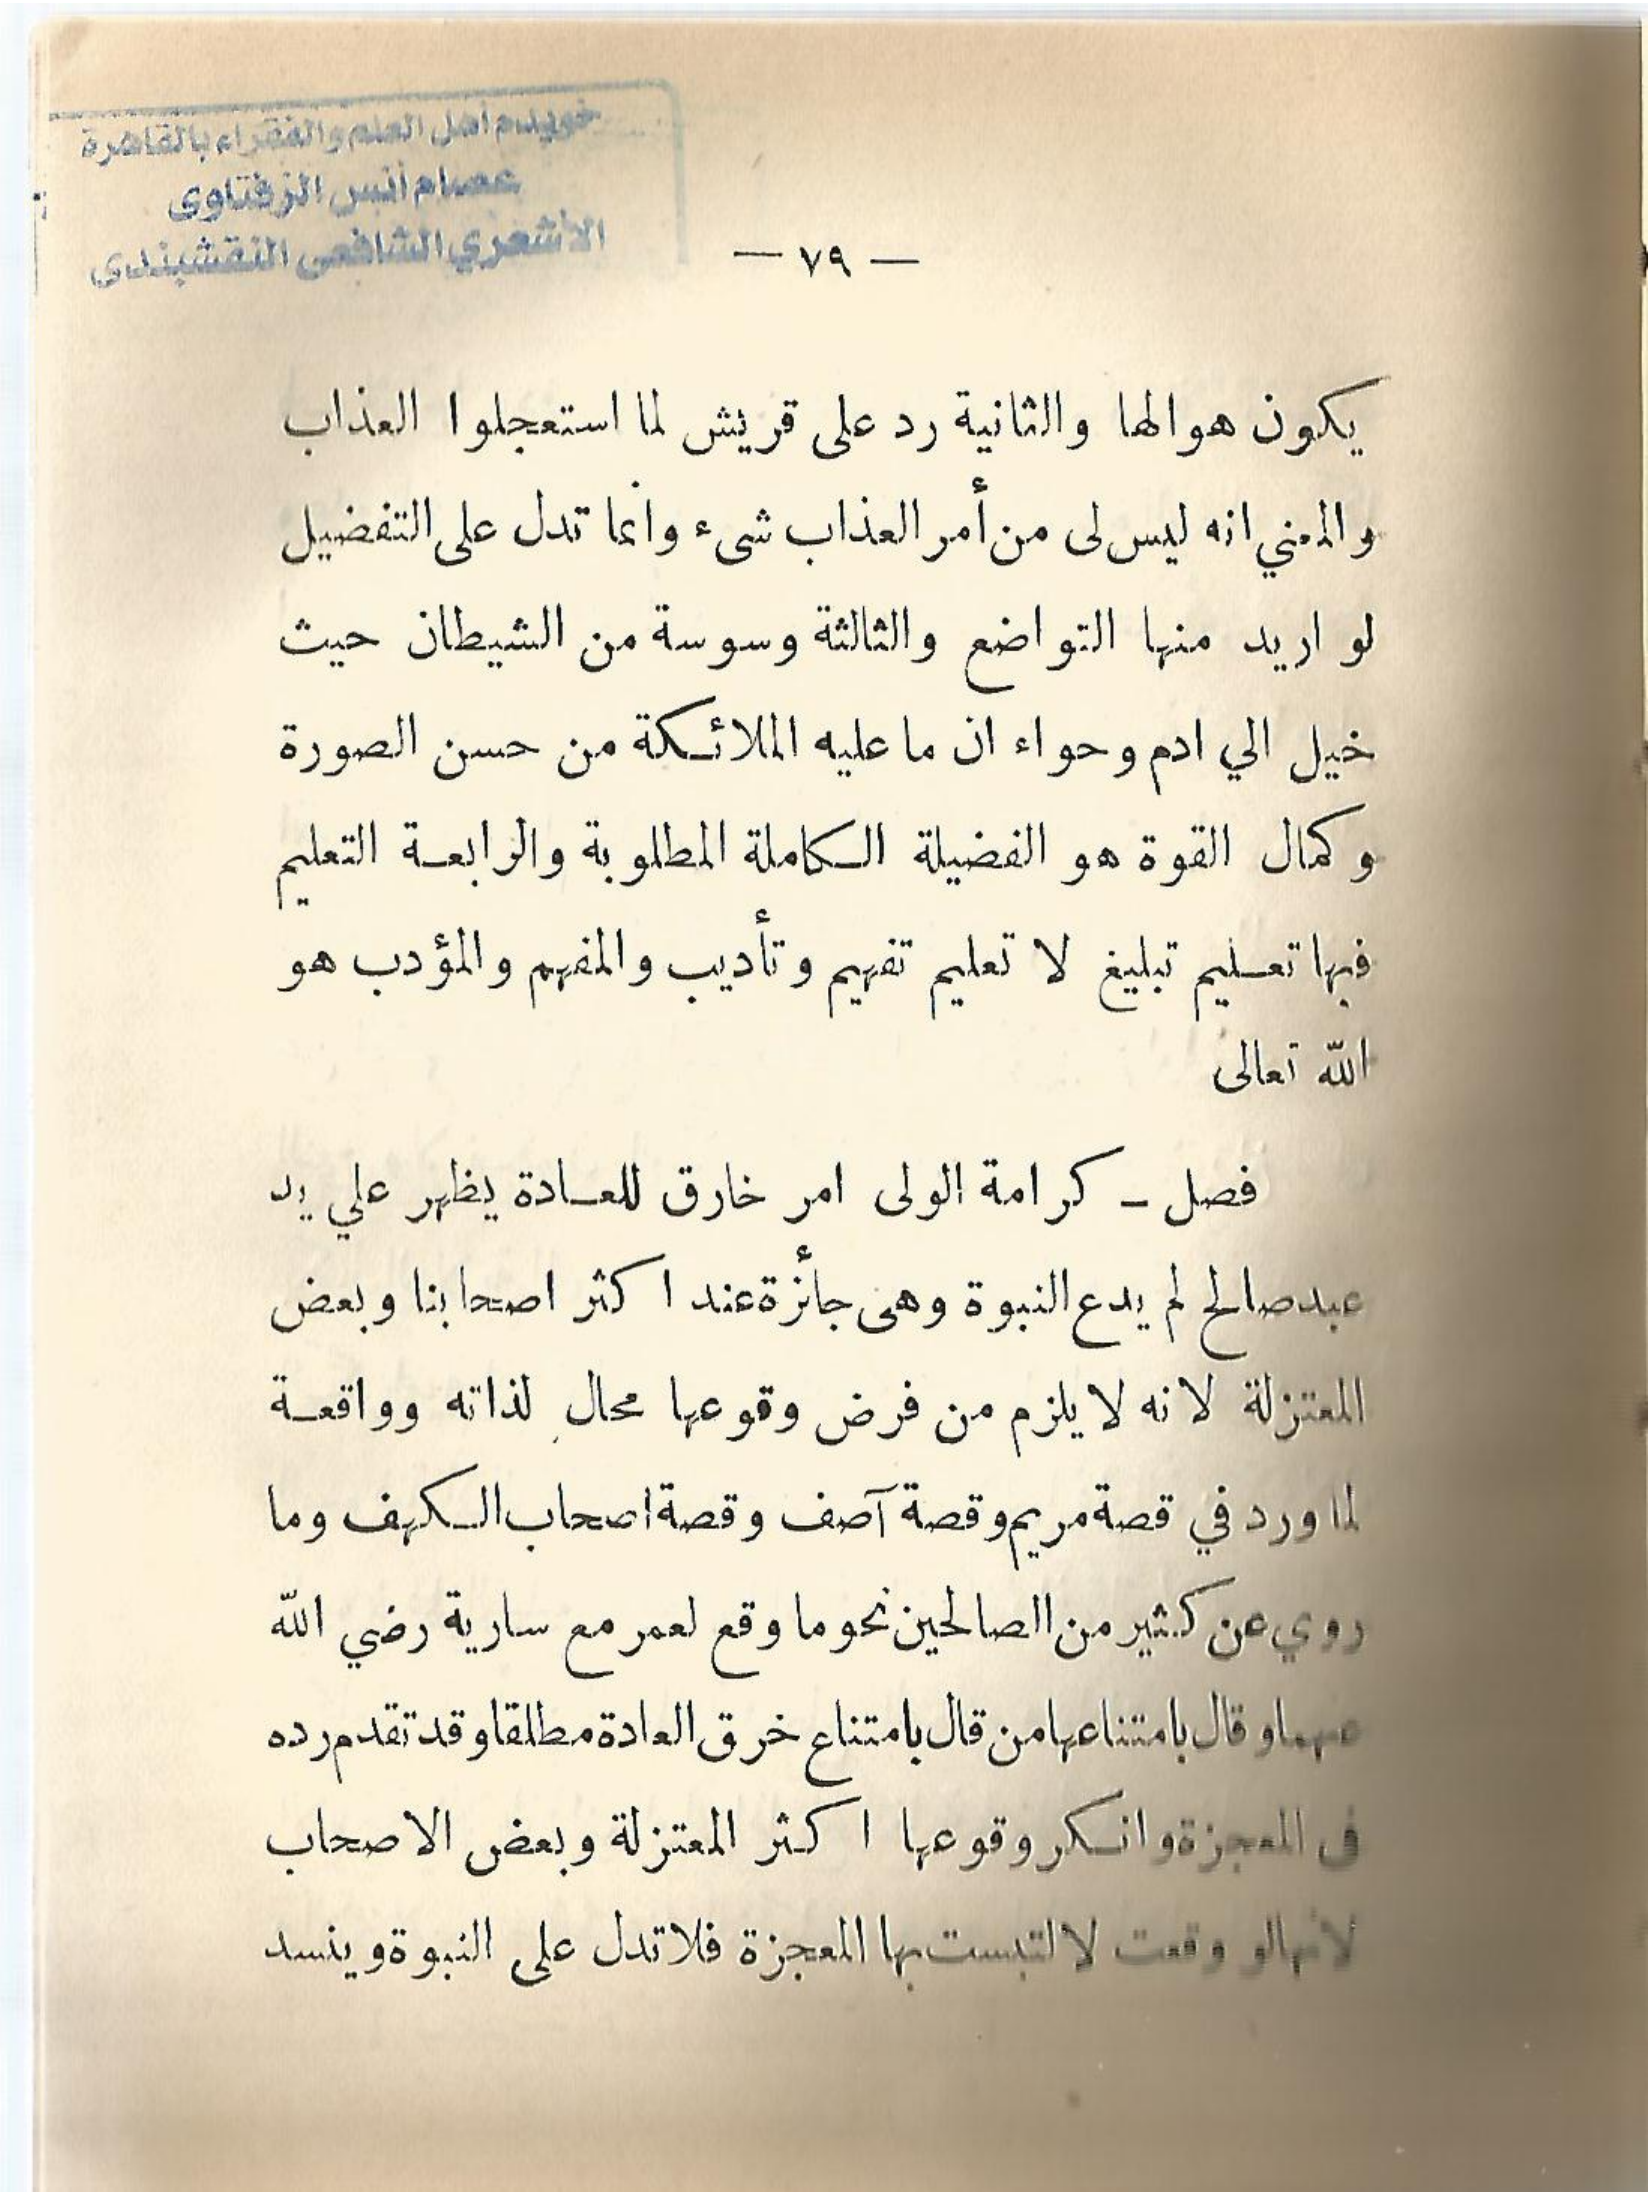 خويدم أهل العلم والفقراء بالقاهرة
عصام أنس الزفتاوى
الأشعري الشافعي النقشبندى
— ٧٩ —
يكون هوالها والثانية رد على قريش لما استعجلوا العذاب
والمعني انه ليس لى من أمر العذاب شىء وانما تدل على التفضيل
لو اريد منها التواضع والثالثة وسوسة من الشيطان حيث
خيل الي ادم وحواء ان ما عليه الملائكة من حسن الصورة
وكمال القوة هو الفضيلة الكاملة المطلوبة والرابعة التعليم
فيها تعليم تبليغ لا تعليم تفهيم وتأديب والمفهم والمؤدب هو
الله تعالى
فصل ــ كرامة الولى امر خارق للعادة يظهر علي يد
عبد صالح لم يدع النبوة وهى جأئزة عند اكثر اصحابنا وبعض
المعتزلة لانه لا يلزم من فرض وقوعها محال لذاته وواقعة
لما ورد في قصة مريم وقصة آصف وقصة اصحاب الكهف وما
روي عن كثير من الصالحين نحو ما وقع لعمر مع سارية رضي الله
عنهما وقال بامتناعها من قال بامتناع خرق العادة مطلقا وقد تقدم رده
فى المعجزة وانكر وقوعها اكثر المعتزلة وبعض الاصحاب
لانها لو وقعت لالتبست بها المعجزة فلا تدل على النبوة وينسد